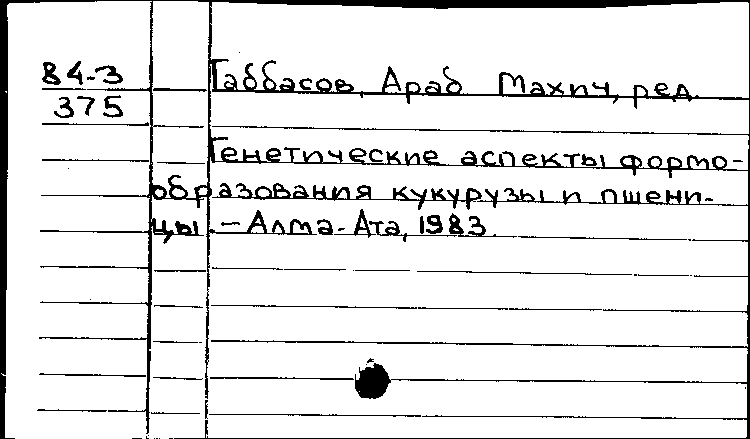 84-3 Габбасов, Араб Махич, ред.
375
Генетические аспекты формо-
образования кукурузы и пшени-
цы. – Алма-Ата, 1983.